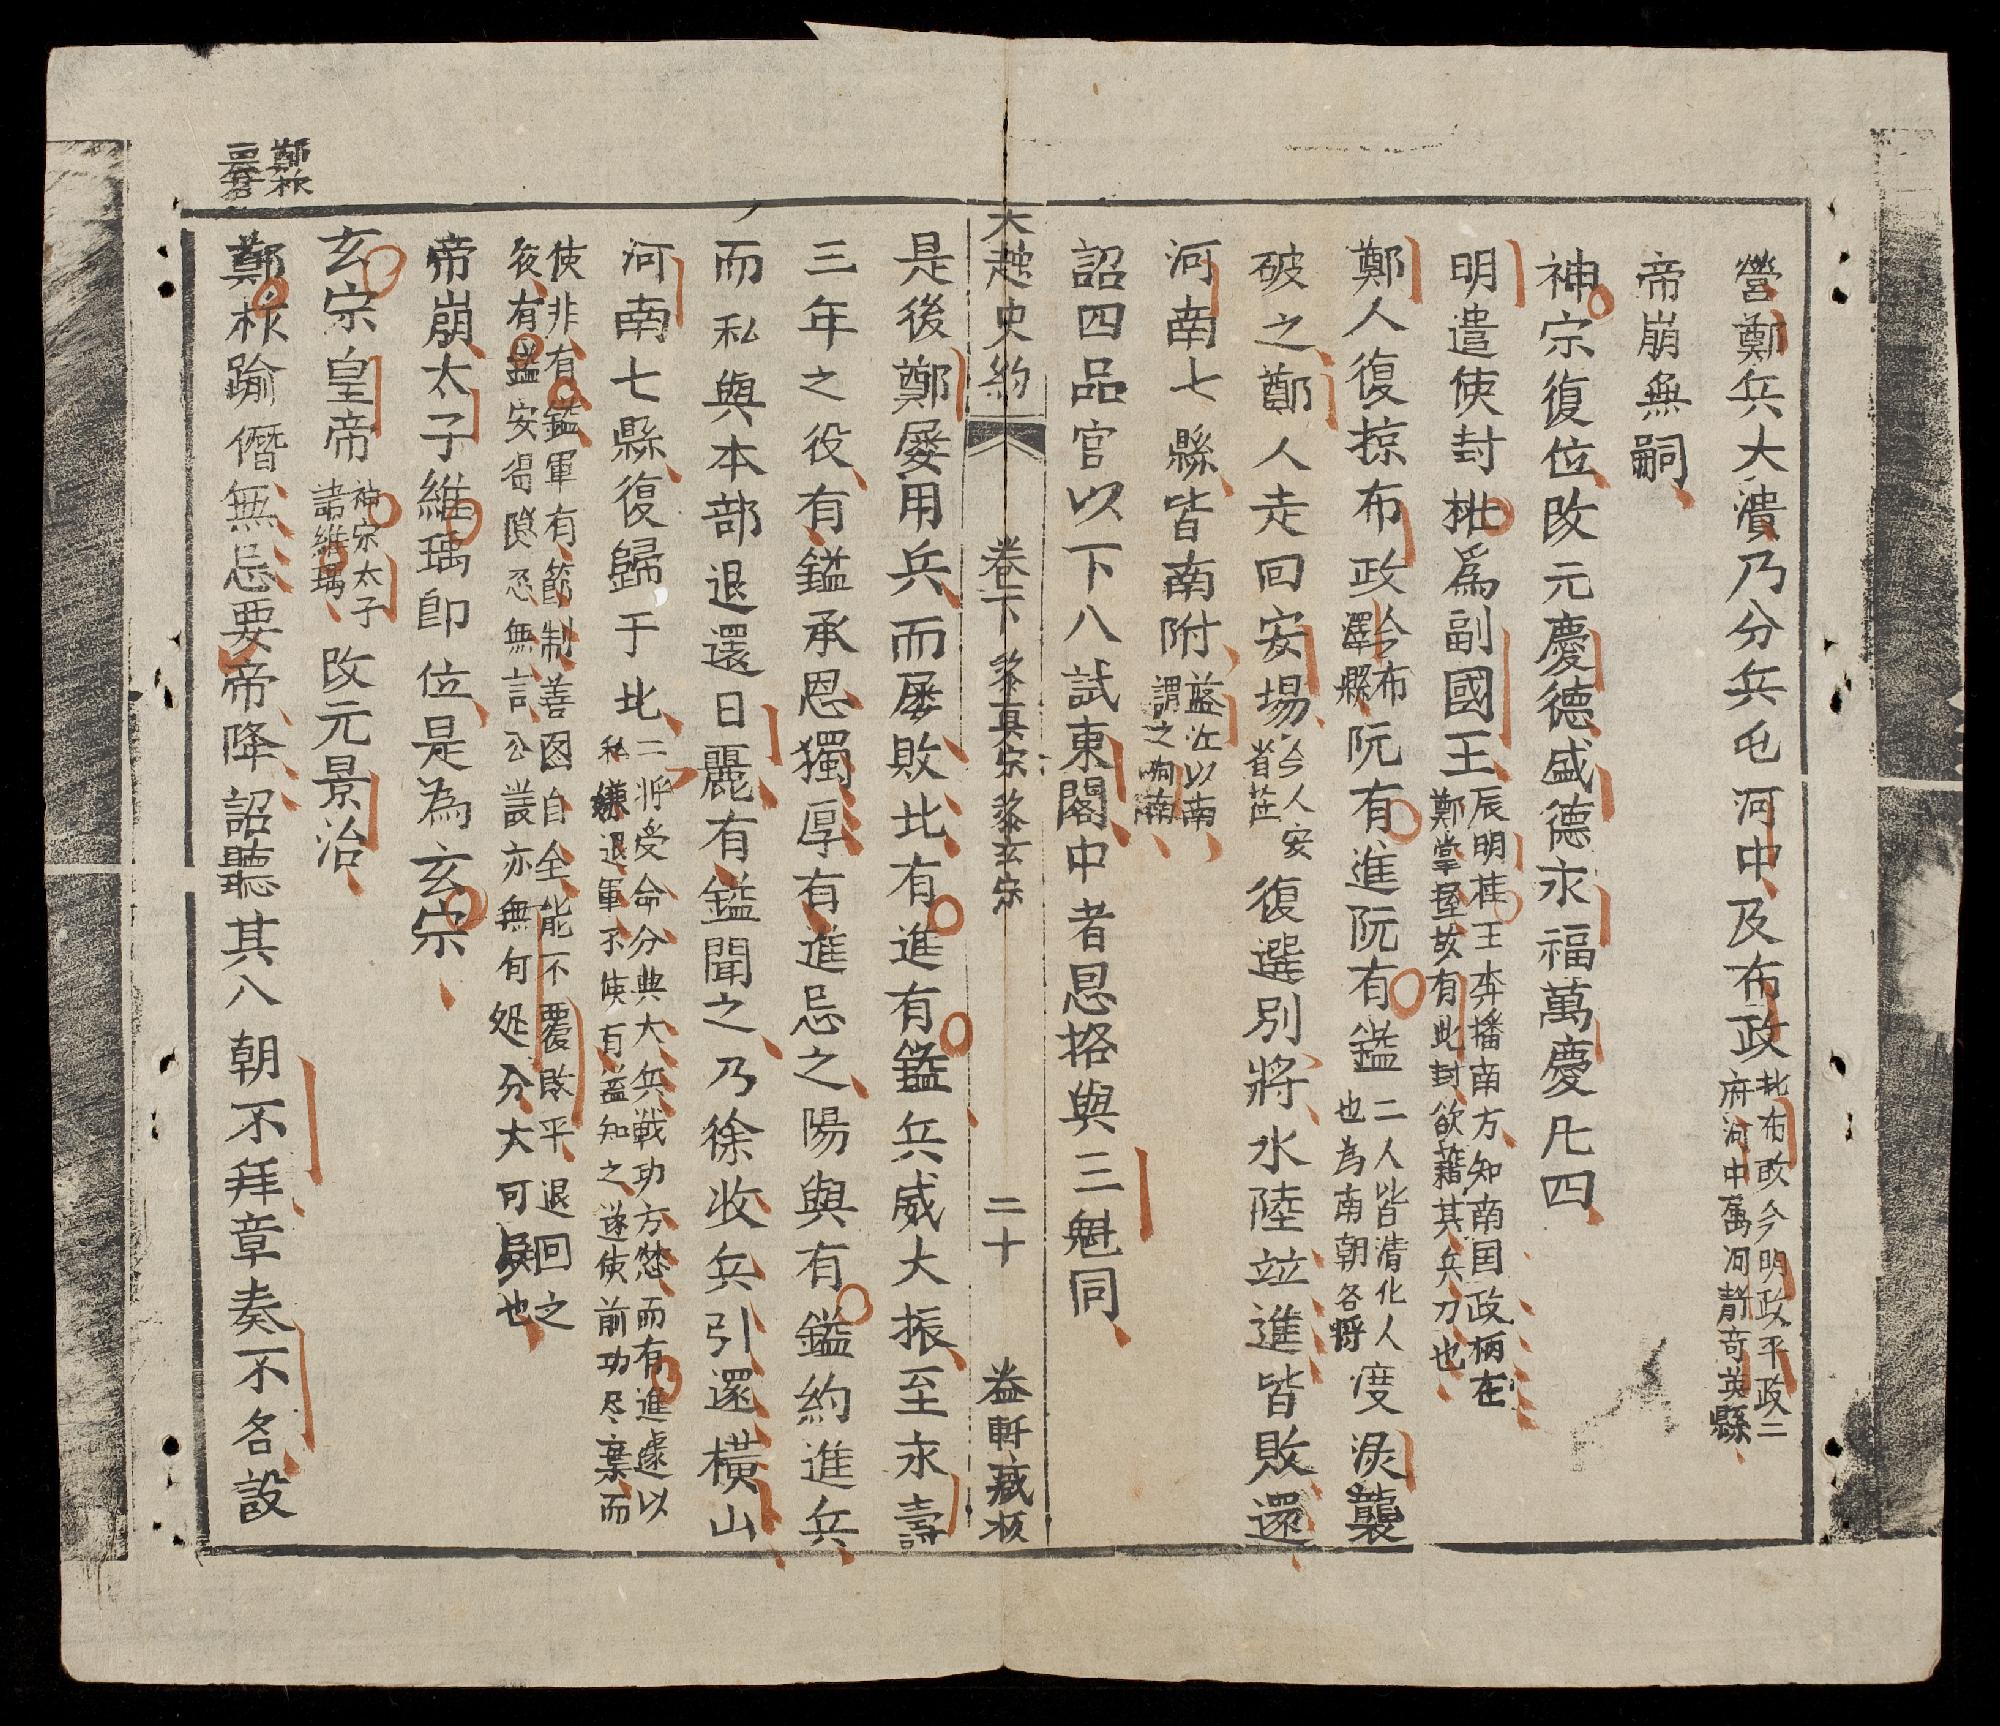 營鄭兵大潰乃分兵屯河中及布政北布政今明政平政二府河中萬河靜奇英縣
帝崩無嗣
神宗復位改元慶德盛德永福萬慶凡四
明遣使封柞爲副國王辰明桂王奔播南方知南国政柄在鄭掌握故有此封欲藉其兵力也
鄭人復掠布政今布澤縣阮有進阮有鎰二人皆清化人也為南朝各將度淚襲
破之鄭人走回安場今人安省茫復選別將水陸竝進皆敗還
河南七縣皆南附藍江以南謂之河南
詔四品官以下八試東閣中者恩挌與三魁同
大越史約 卷下 黎真宗黎玄宗 二十 益軒藏板
是後鄭屡用兵而屡敗北有進有鎰兵威大振至永壽
三年之役有鎰承恩獨厚有進忌之陽與有鎰約進兵
而私與本部退還日麗有鎰聞之乃徐收兵引還橫山
河南七縣復歸于北二將受命分典大兵戰功方愁而有進遽以私嫌退軍不使有鎰知之遂使前功尽棄而
使非有鎰軍有節制善图自全能不覆敗乎退回之夜有鎰安得隠忍無言公議亦無何処分大可疑也
帝崩太子維瑀即位是為玄宗
玄宗皇帝神宗太子諱維瑀改元景治
鄭柞踰僭無忌要帝降詔聽其入朝不拜章奏不名設
鄭柞